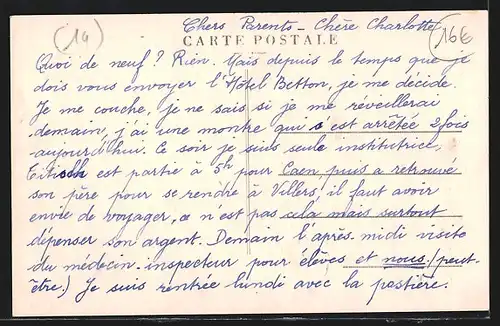 Chers Parents - Chère Charlotte
(14)
16€
CARTE POSTALE
Quoi de neuf ? Rien. Mais depuis le temps que je
dois vous envoyer l'Hôtel Betton, je me décide.
Je me couche, je ne sais si je me réveillerai
demain, j'ai une montre qui s'est arrêtée 2 fois
aujourd'hui. Ce soir je suis seule institutrice,
est partie à 5h pour Caen, puis a retrouvé
son père pour se rendre à Villers, il faut avoir
envie de voyager, ce n'est pas cela mais surtout
dépenser son argent. Demain l'après-midi visite
du médecin-inspecteur pour élèves et nous. (peut-
être.) Je suis rentrée lundi avec la postière.